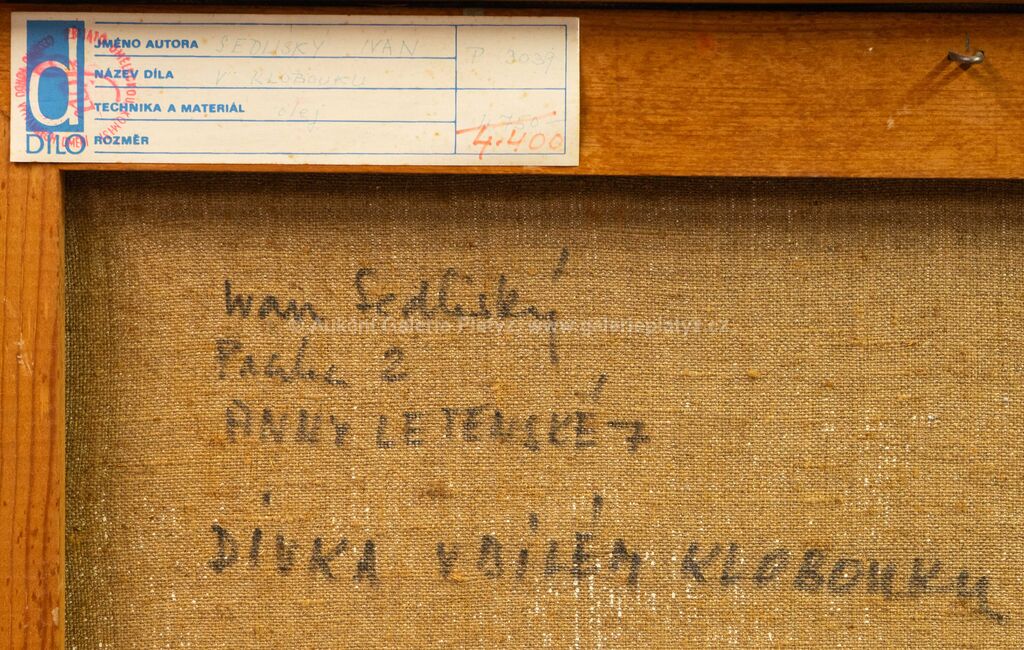 d
DÍLO
JMÉNO AUTORA SEDLISKÝ IVAN
NÁZEV DÍLA V KLOBOUKU
TECHNIKA A MATERIÁL olej
ROZMĚR
P 3039
4.400
Ivan Sedliský
Praha 2
ANNY LETENSKÉ 7
DÍVKA V BÍLÉM KLOBOUKU
© Aukční Galerie Platýz, www.galerieplatyz.cz